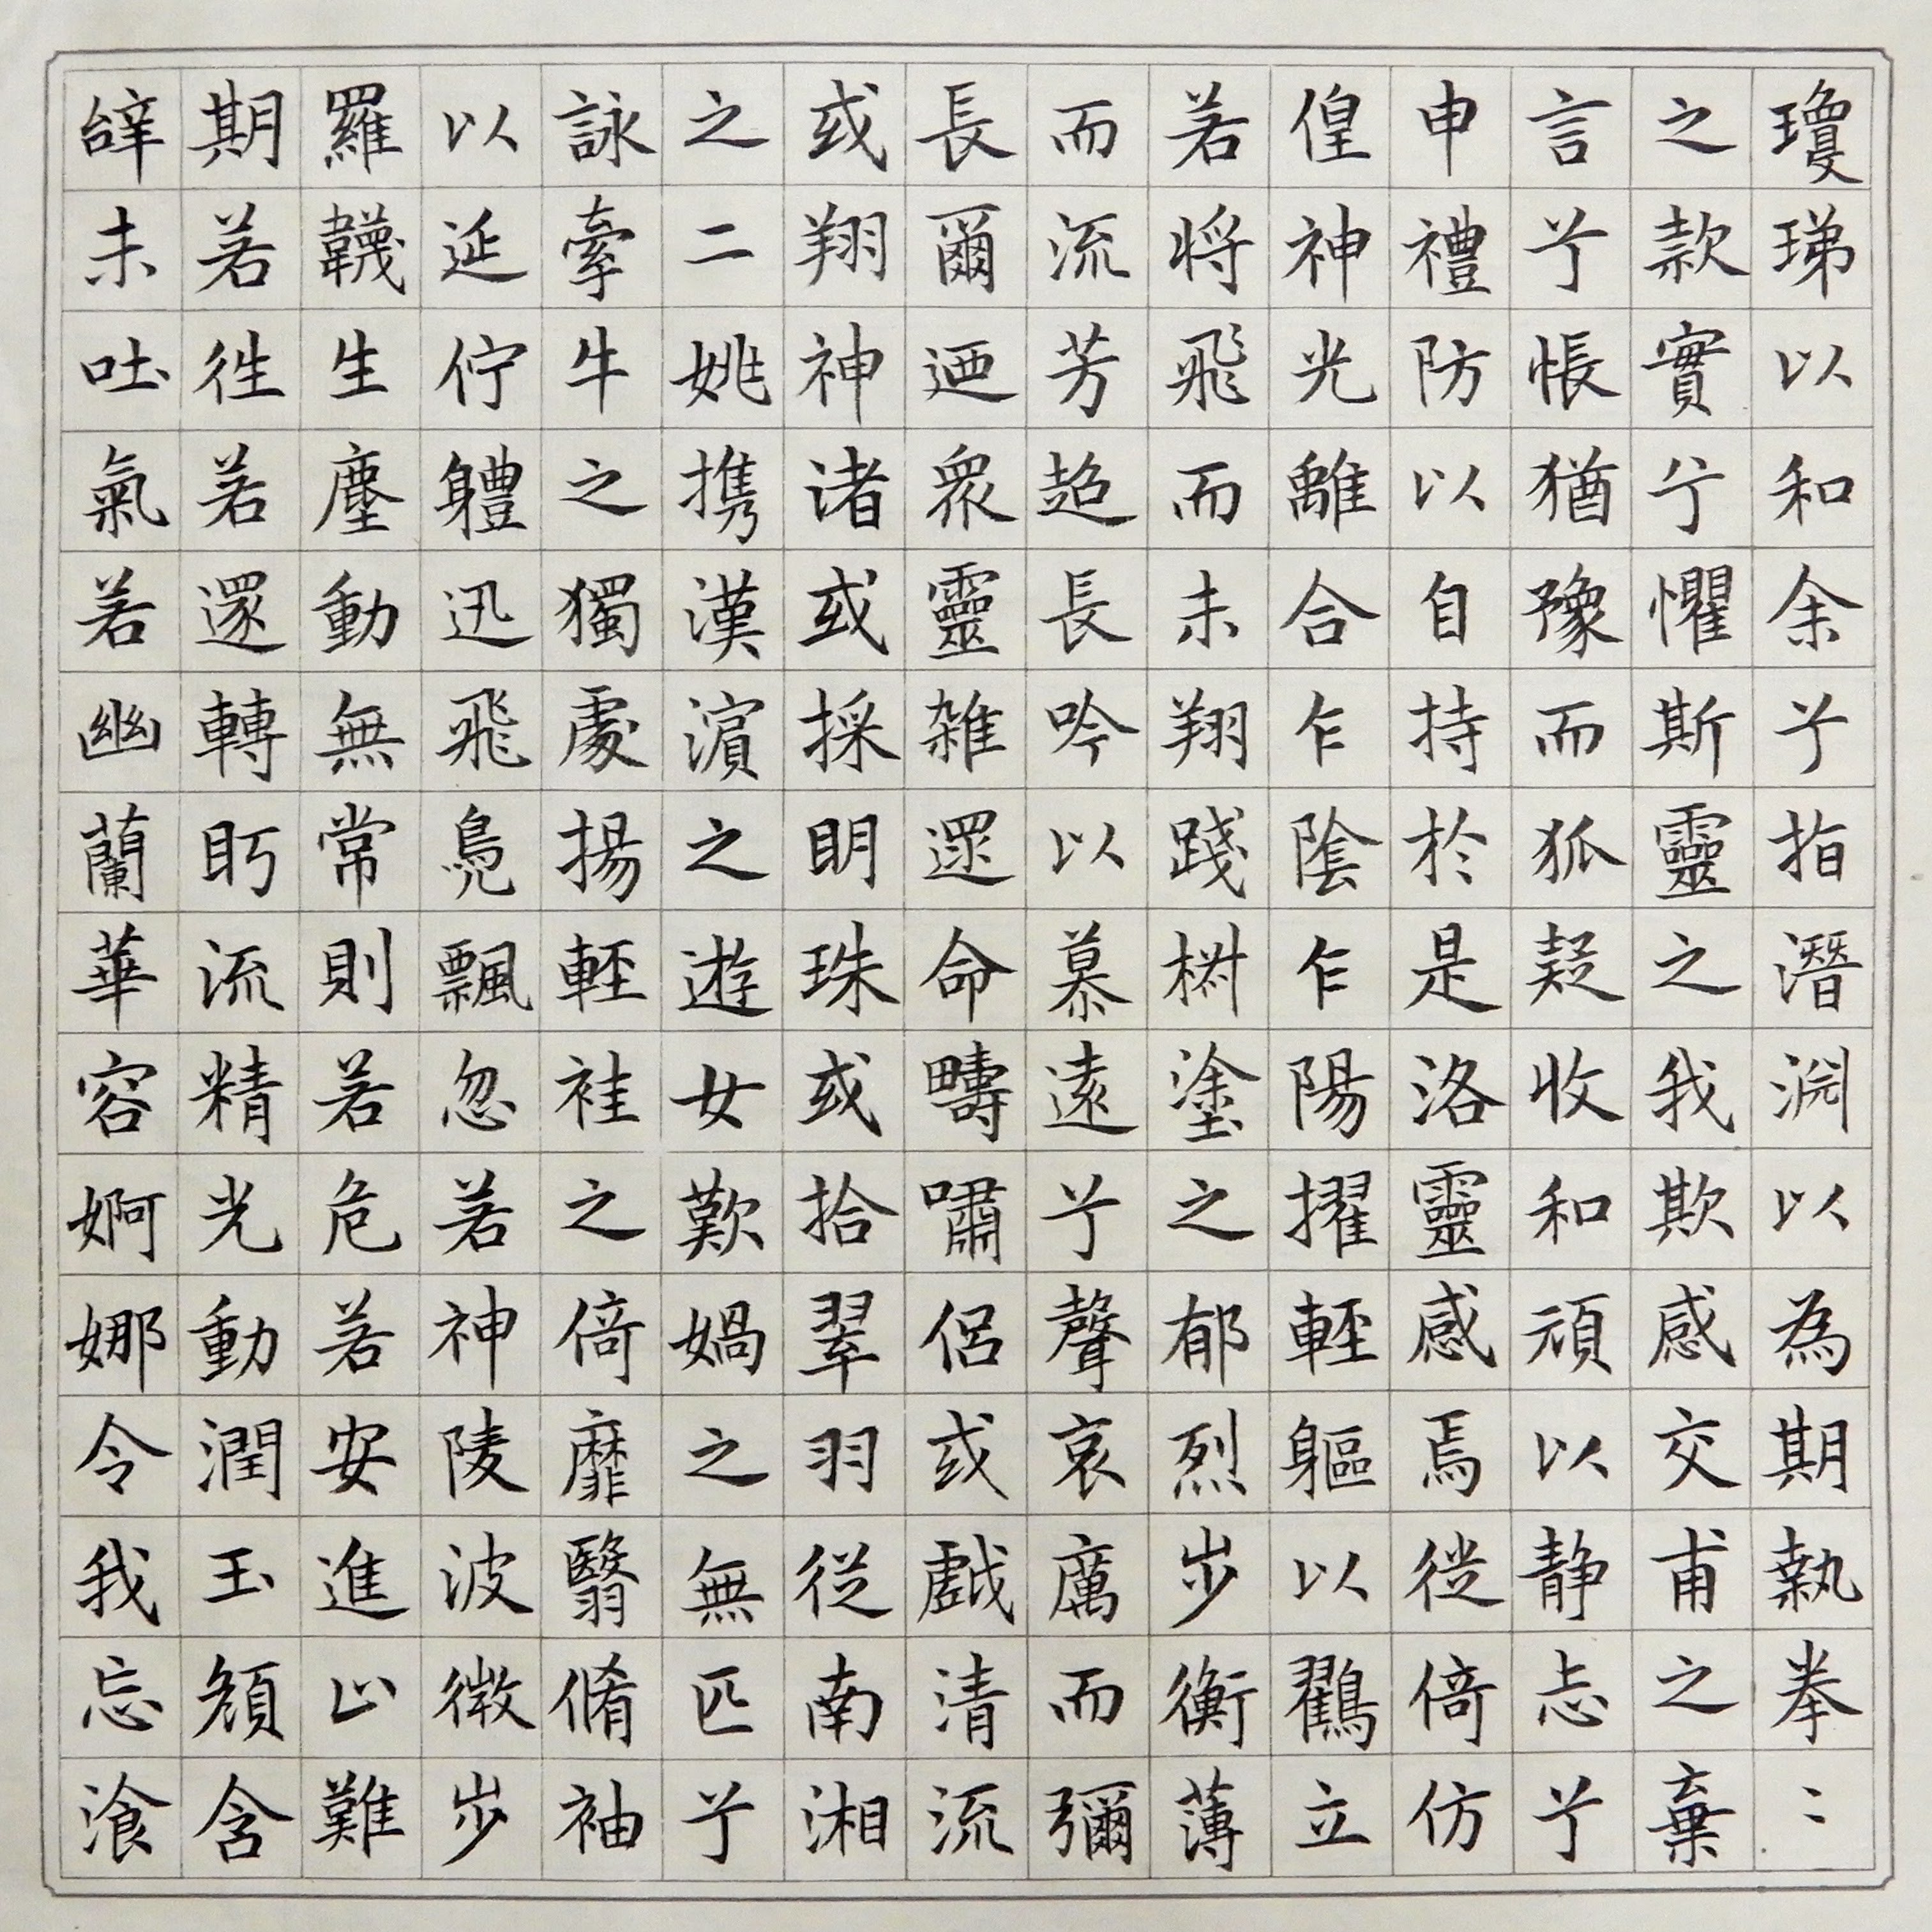 瓊珶以和余兮指潛淵以為期執拳〻
之款實兮懼斯靈之我欺感交甫之棄
言兮悵猶豫而狐疑收和顏以静志兮
申禮防以自持於是洛靈感焉徙倚仿
偟神光離合乍陰乍陽擢輕軀以鶴立
若将飛而未翔踐椒塗之郁烈步衡薄
而流芳超長吟以慕遠兮聲哀厲而彌
長爾迺衆靈雜遝命疇嘯侶或戲清流
或翔神渚或採明珠或拾翠羽從南湘
之二姚攜漢濱之遊女歎媧之無匹兮
詠牽牛之獨處揚輕袿之倚靡翳脩袖
以延佇體迅飛鳧飄忽若神陵波微步
羅韈生塵動無常則若危若安進止難
期若往若還轉眄流精光動潤玉顏含
辭未吐氣若幽蘭華容婀娜令我忘飡